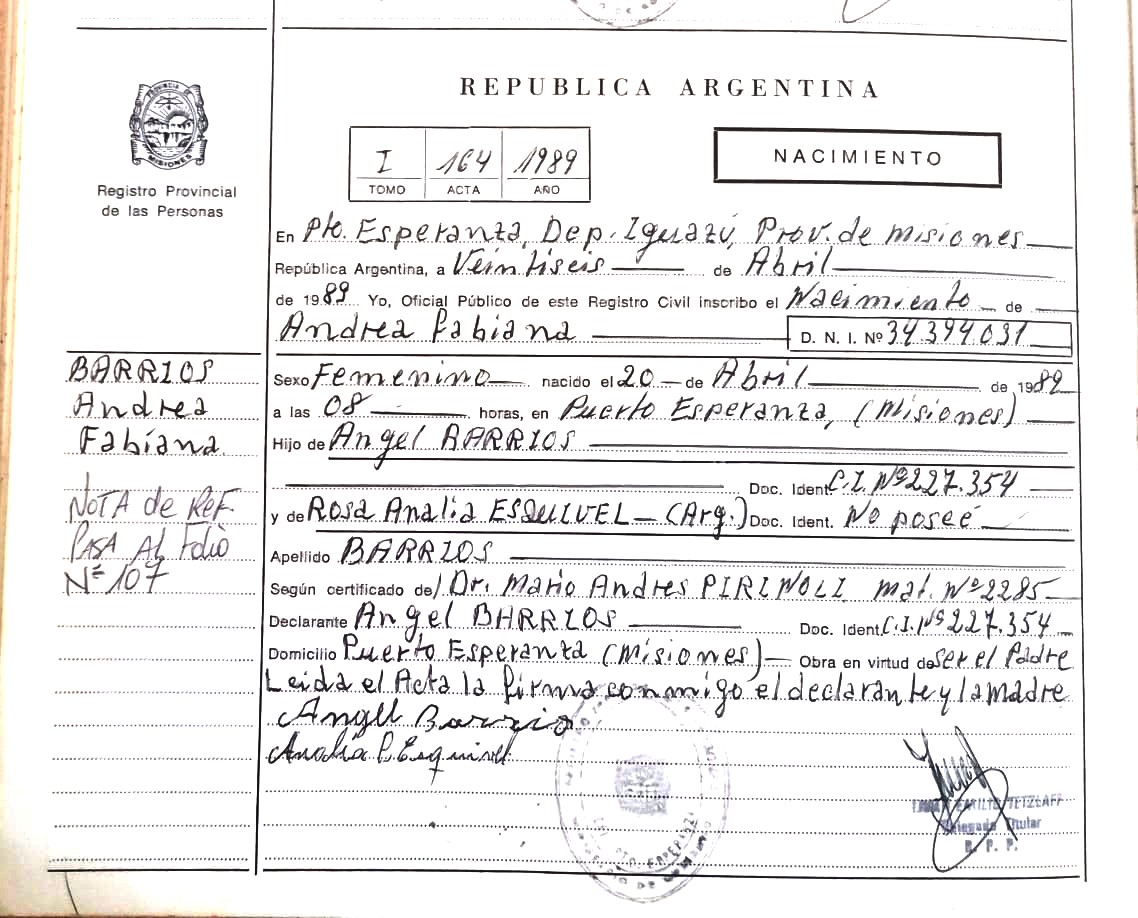 PROVINCIA DE
MISIONES
Registro Provincial
de las Personas
REPUBLICA ARGENTINA
I 164 1989
TOMO ACTA AÑO
NACIMIENTO
En Pto. Esperanza, Dep. Iguazú, Prov. de Misiones
República Argentina, a Veintiseis de Abril
de 1989 Yo, Oficial Público de este Registro Civil inscribo el Nacimiento de
Andrea Fabiana D. N. I. Nº 34394031
BARRIOS
Andrea
Fabiana
Sexo Femenino nacido el 20 de Abril de 1989
a las 08 horas, en Puerto Esperanza, (Misiones)
Hijo de Angel BARRIOS
Doc. Ident. C.I. Nº 227.354
y de Rosa Analia ESQUIVEL (Arg.) Doc. Ident. No poseé
NOTA de Ref.
PASA AL Folio
Nº 107
Apellido BARRIOS
Según certificado de Dr. Mario Andres PIRINOLI mat. Nº 2285
Declarante Angel BARRIOS Doc. Ident. C.I. Nº 227.354
Domicilio Puerto Esperanza (Misiones) Obra en virtud de ser el Padre
Leida el Acta la firma conmigo el declarante y la madre
Angel Barrio
Analia R Esquivel
EMILIO TETZLAFF
Delegado Titular
R. P. P.
PTO. ESPERANZA